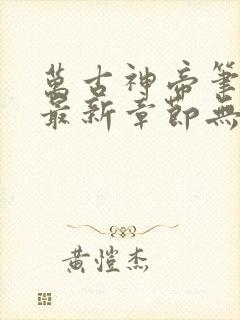 萬古神帝筆
最新章節無
黃愷杰